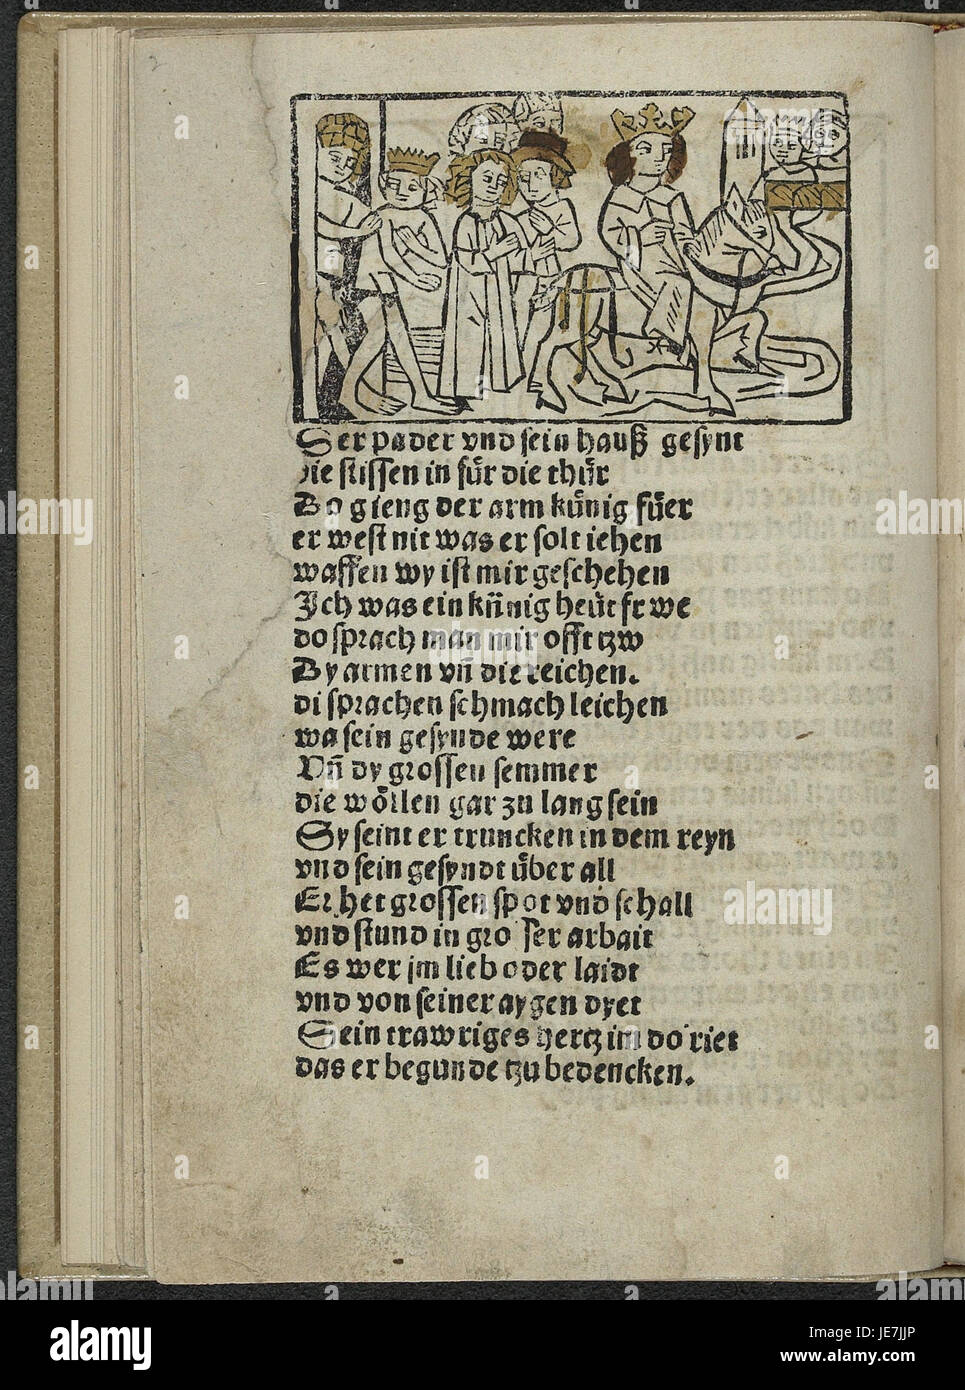 Der pader vnd sein hauß gesynt
die stissen in für die thür
Do gieng der arm künig füer
er west nit was er solt iehen
waffen wy ist mir geschehen
Ich was ein künig heüt frwe
do sprach man mir offt tzw
By armen vñ die reichen.
di sprachen schmach leichen
wa sein gesynde were
Vñ dy grossen semmer
die wöllen gar zu lang sein
Sy seint er truncken in dem reyn
vnd sein gesyndt über all
Er het grossen spot vnd schall
vnd stund in grosser arbait
Es wer jm lieb oder laidt
vnd von seiner aygen dyet
Sein trawriges hertz im do riet
das er begunde tzu bedencken.
alamy
alamy
Image ID: JE7JJP
www.alamy.com